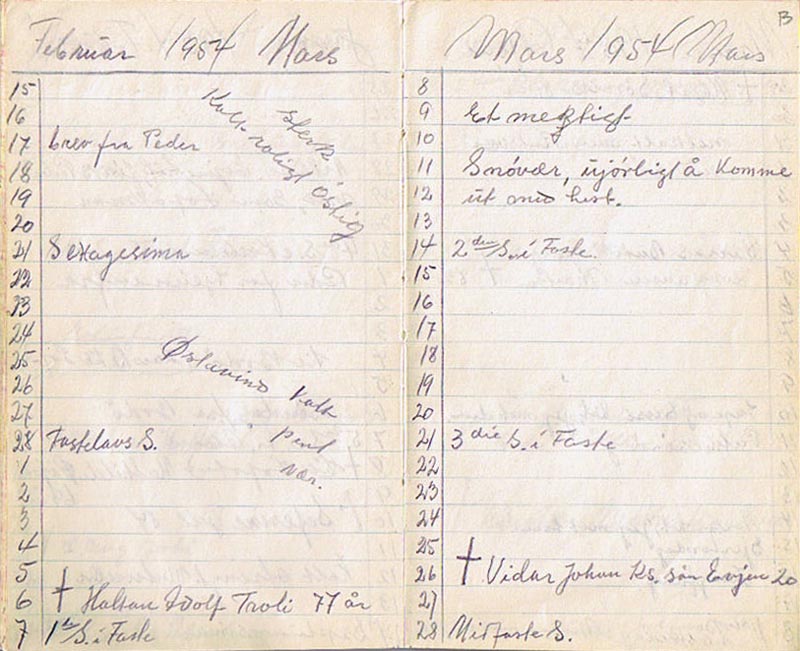 Februar 1954 Mars
15
16
17 brev fra Peder
18
19
20
21 Sexagesima
22
23
24
25
26
27
28 Fastelavs S.
1
2
3
4
5
6 † Haltan Adolf Troli 77 år
7 1ste S. i Faste
sterk
Kald roligt østlig
Østavind kald
pent
vær.
B
Mars 1954 Mars
8
9 Et mektigt
10
11 Snóvær, ujórligt å komme
12 ut med hest.
13
14 2den S. i Faste.
15
16
17
18
19
20
21 3die S. i Faste
22
23
24
25
26 † Vidar Johan Ks. søn Evjen 20
27
28 Midfaste S.